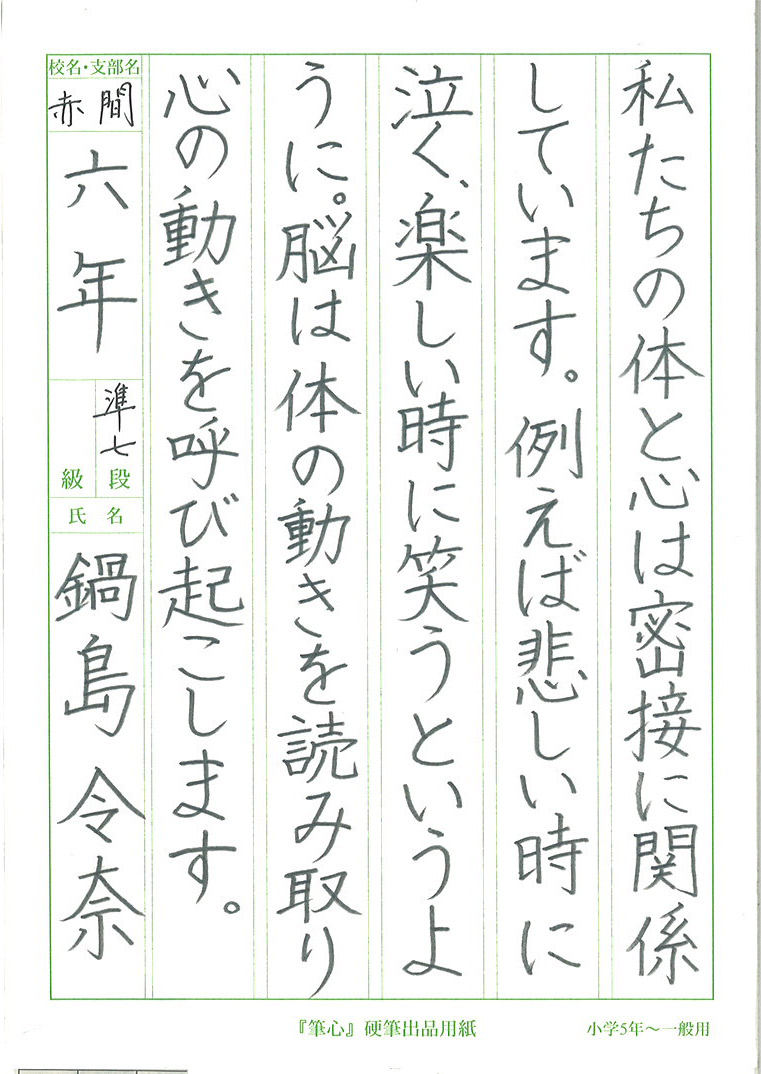 私たちの体と心は密接に関係
しています。例えば悲しい時に
泣く、楽しい時に笑うというよ
うに。脳は体の動きを読み取り
心の動きを呼び起こします。
校名・支部名
赤間
六年
準七
級 段
氏名
鍋島令奈
『筆心』硬筆出品用紙
小学5年〜一般用